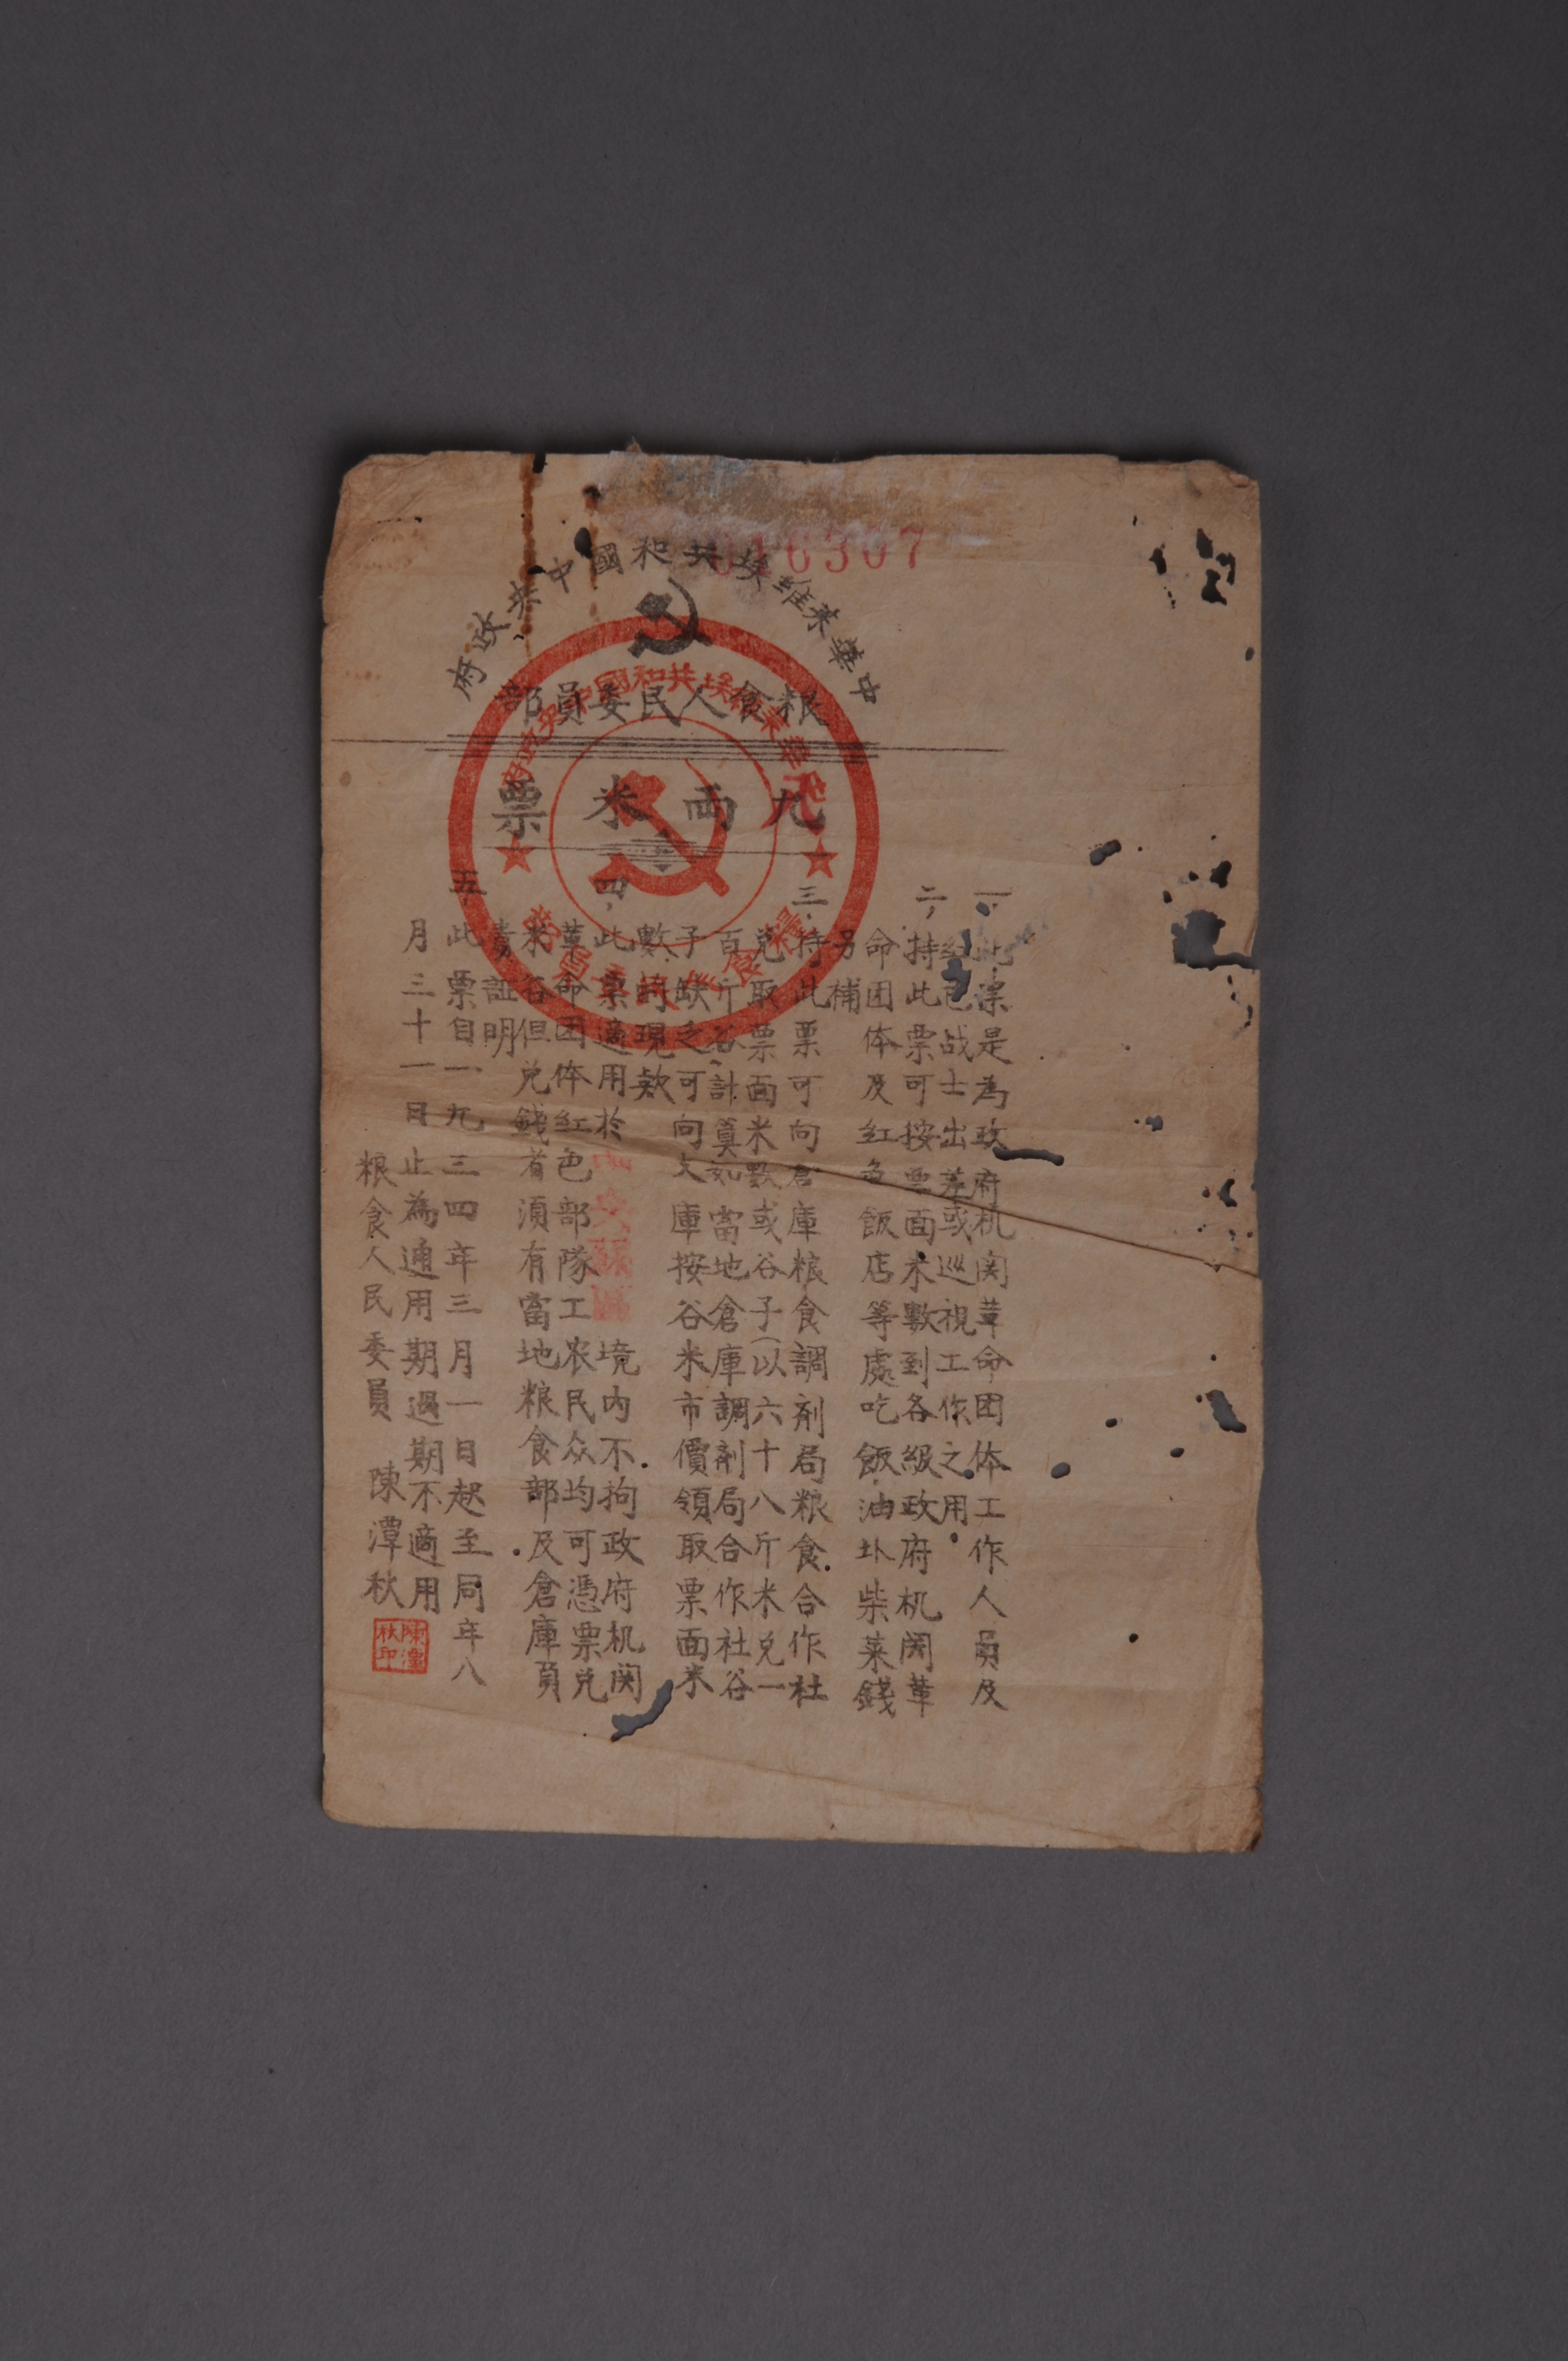 16307
中華蘇維埃共和國中央政府
粮食人民委員部
九两米票
一、此票是為政府机関革命团体工作人員及
红色战士出差或巡視工作之用
二、持此票可按票面米數到各級政府机関革
命团体及红色飯店等處吃飯油圤柴菜錢
另補
三、持此票可向倉庫粮食調剂局粮食合作社
兑取票面米數或谷子(以六十八斤米兑一
百斤谷計算如當地倉庫調剂局合作社谷
子缺乏可向支庫按谷米市價領取票面米
數的現款
四、此票適用於中央蘇區境内不拘政府机関
革命团体红色部隊工农民众均可憑票兑
米谷但兑錢者須有當地粮食部及倉庫負
責証明
五、此票自一九三四年三月一日起至同年八
月三十一日止為通用期過期不適用
粮食人民委員 陳潭秋
陳潭秋印